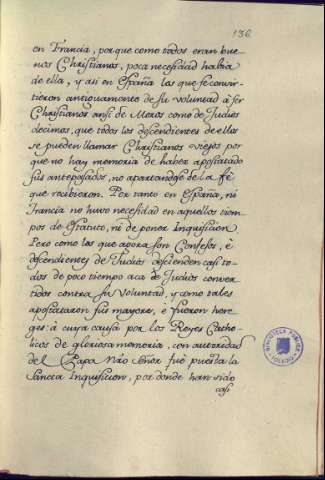 136
en Francia, porque como todos eran bue-
nos Christianos, poca necesidad habia
de ella, y asi en España los que se convir-
tieron antiguamente de su voluntad à ser
Christianos ansi de Moros como de Judios
decimos, que todos los descendientes de ellos
se pueden llamar Christianos viejos por
que no hay memoria de haber apostatado
sus antepasados, no apartandose de la fé
que recibieron. Por tanto en España, ni
Francia no huvo necesidad en aquellos tiem-
pos de Estatuto, ni de poner Inquisicion.
Pero como los que agora son Confesos, è
descendientes de Judios descienden casi to-
dos de poco tiempo aca de Judios conver
tidos contra su voluntad, y como tales
apostataron sus mayores, è fueron here-
ges à cuya causa por los Reyes Catho-
licos de gloriosa memoria, con autoridad
del Papa Nrõ Señor fué puesta la
Sancta Inquisicion, por donde han sido
casi
BIBLIOTECA PUBLICA
TOLEDO